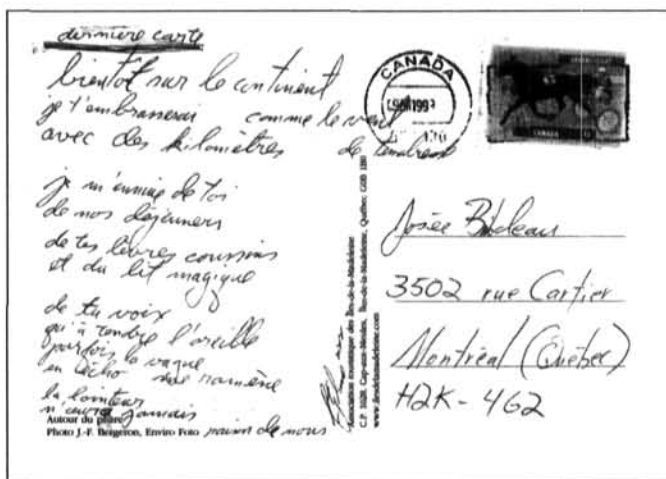 dernière carte
bientôt sur le continent
je t'embrasserai comme le vent
avec des kilomètres de tendresse
je m'ennuie de toi
de nos déjeuners
de tes lèvres coussins
et du lit magique
de ta voix
qu'à tendre l'oreille
parfois la vague
en écho me ramène
la lointeur
n'aura jamais
raison de nous
Autour du phare
Photo J.-F. Bergeron, Enviro Foto
Association touristique des Îles-de-la-Madeleine
C.P. 1028, Cap-aux-Meules, Îles-de-la-Madeleine, Québec G0B 1B0
www.ilesdelamadeleine.com
CANADA
Josée Bilodeau
3502 rue Cartier
Montréal (Québec)
H2K-4G2